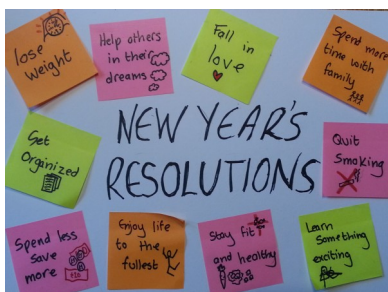 lose
weight
Help others
in their
dreams
Fall in
love
Spend more
time with
family
Get
Organized
NEW YEAR'S
RESOLUTIONS
Quit
Smoking
Spend less
save
more
Enjoy life
to the
fullest
Stay fit
and healthy
Learn
Something
exciting